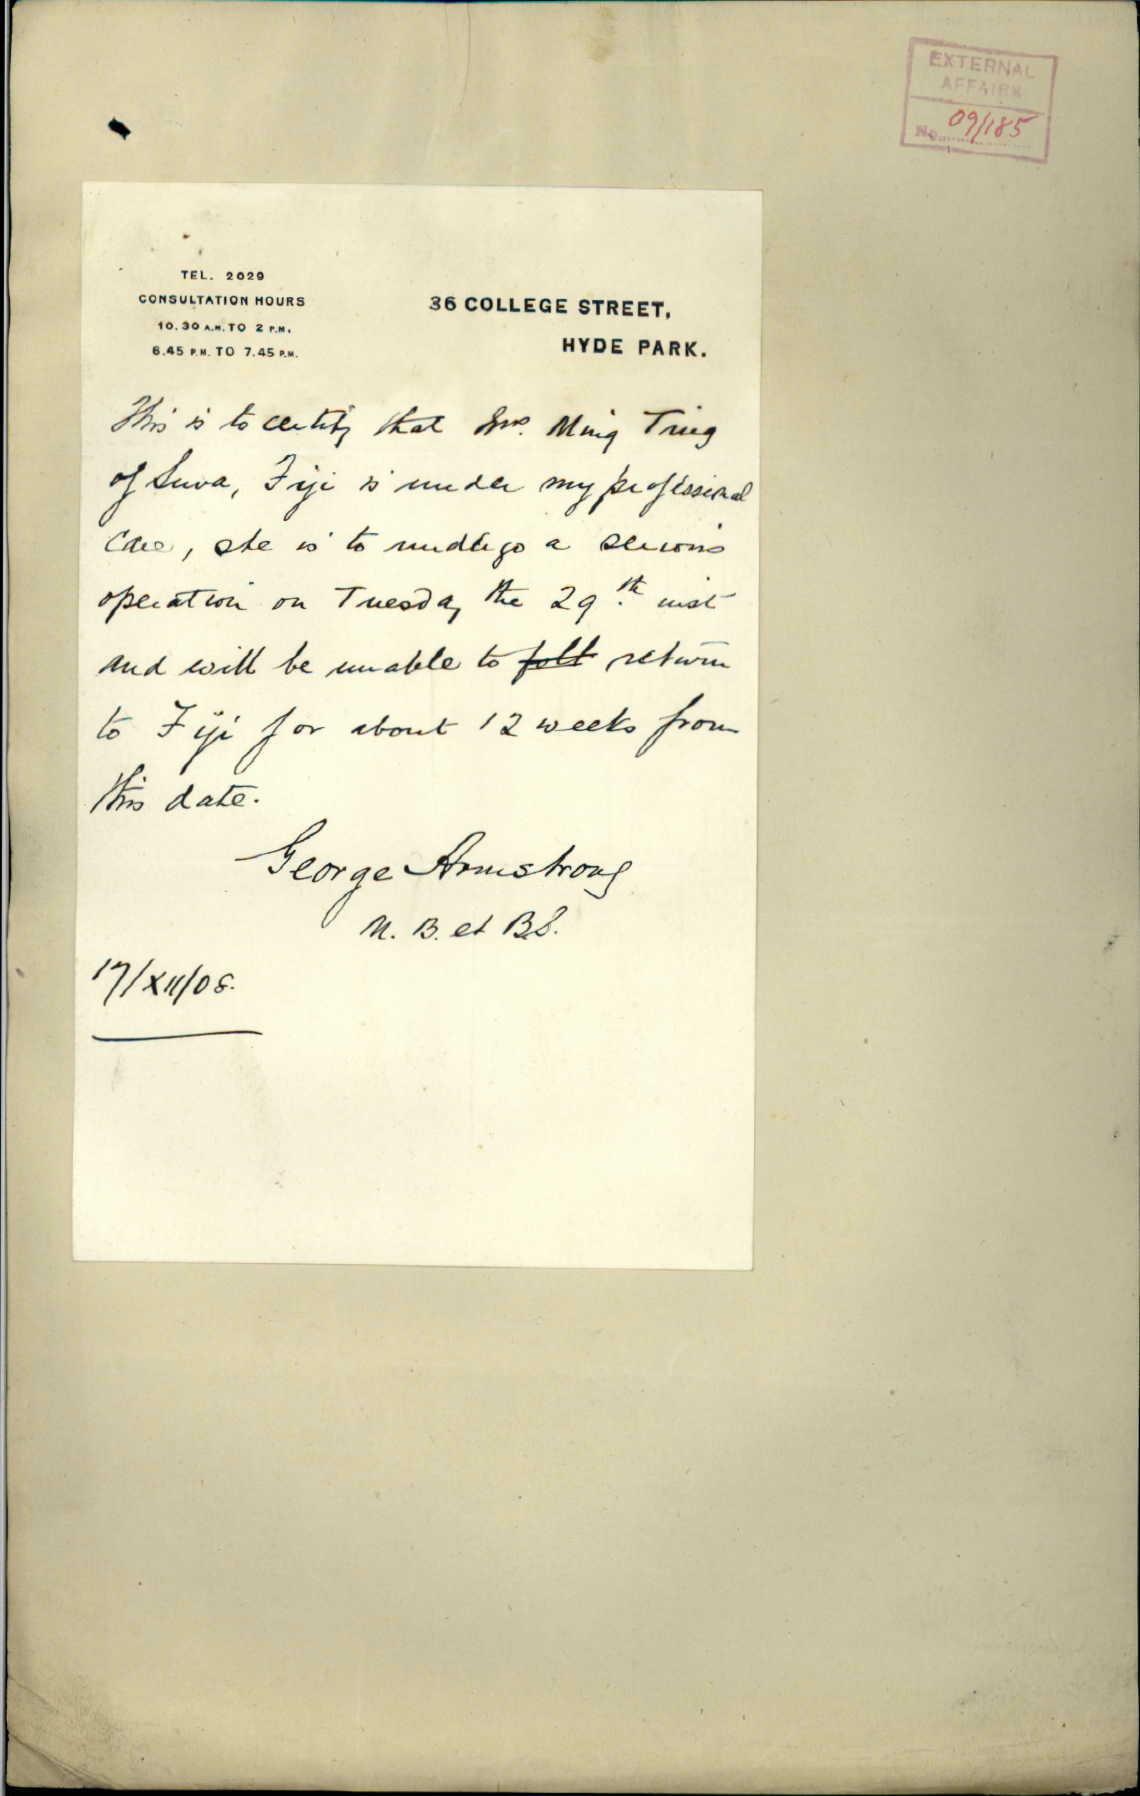 EXTERNAL
AFFAIRS
No. 09/185
TEL. 2029
CONSULTATION HOURS
10.30 A.M. TO 2 P.M.
6.45 P.M. TO 7.45 P.M.
36 COLLEGE STREET,
HYDE PARK.
This is to certify that Mrs. Ming Ting
of Suva, Fiji is under my professional
care, she is to undergo a serious
operation on Tuesday the 29th inst
and will be unable to return
to Fiji for about 12 weeks from
this date.
George Armstrong
M. B. et B.S.
17/XII/08.